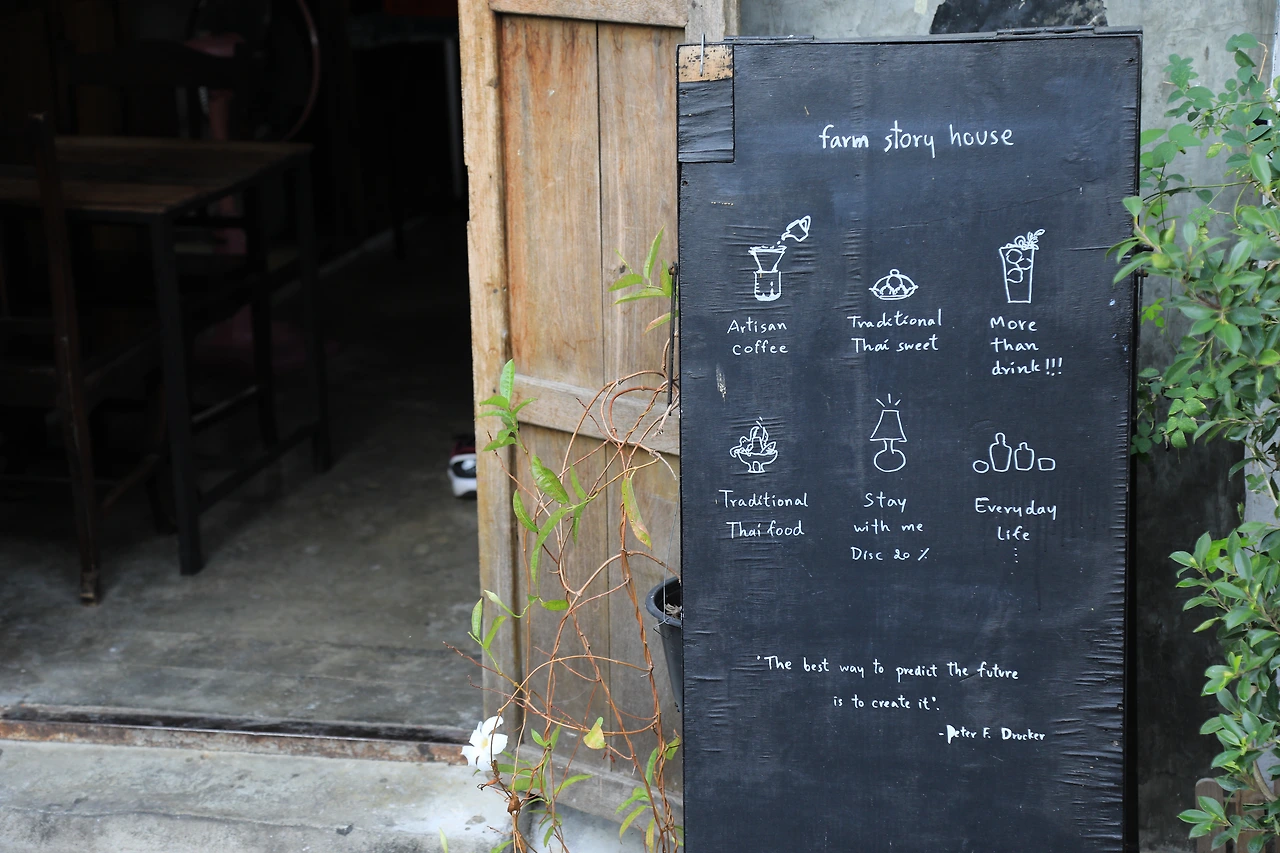 farm story house
Artisan
coffee
Traditional
Thai sweet
More
than
drink!!!
Traditional
Thai food
Stay
with me
Disc 20 %
Everyday
life
"The best way to predict The future
is to create it".
-Peter F. Drucker